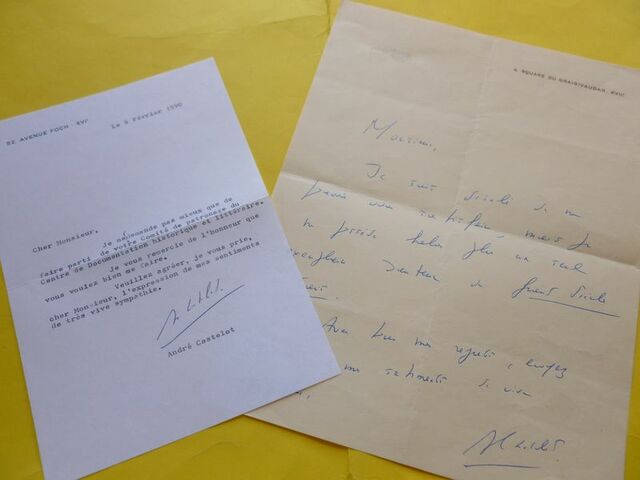 82 AVENUE FOCH XVIe
le 6 Février 1990
Cher Monsieur,
Je ne demande pas mieux que de
faire parti de votre Comité de patronage du
Centre de Documentation historique et littéraire.
Je vous remercie de l'honneur que
vous voulez bien me faire.
Veuillez agréer, je vous prie,
cher Monsieur, l'expression de mes sentiments
de très vive sympathie.
André Castelot
4, SQUARE DU GRAISIVAUDAN XVIIe
Monsieur,
Je suis désolé de ne
pouvoir vous satisfaire, mais je
ne possède hélas plus un seul
exemplaire
mes regrets
mes sentiments